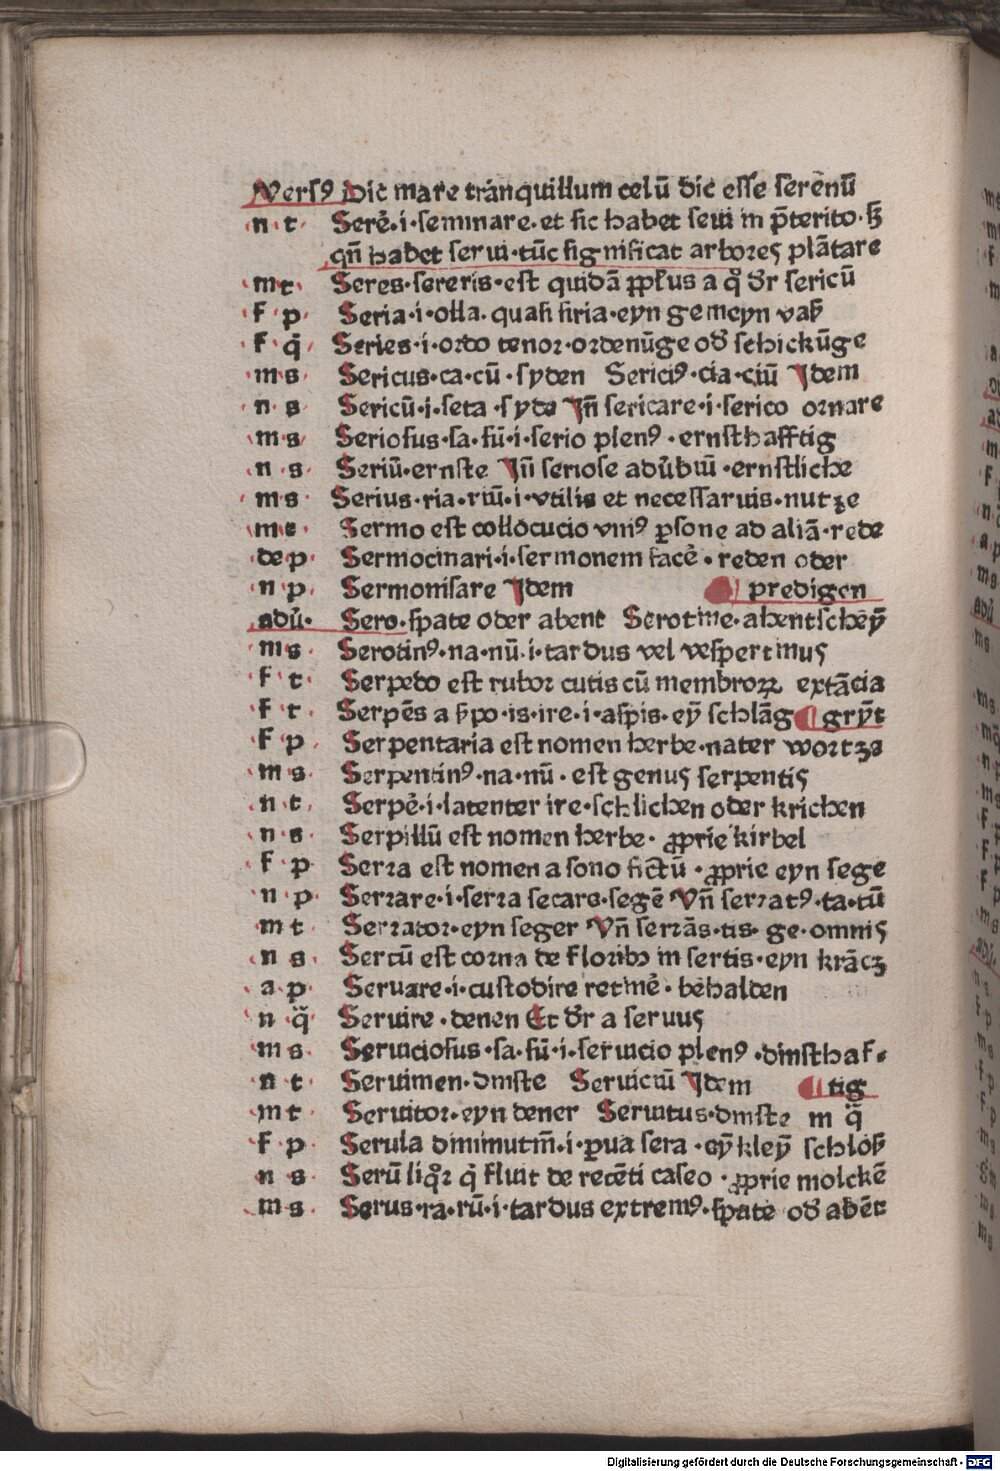 Versꝰ Dic mare tranquillum celū dic esse serenū
n t Serē·i·seminare·et sic habet seui in p̄terito·s̄
qn̄ habet serui·tūc significat arbores plātare
m t Seres·sereris·est quidā ppl̄us a qͦ dr̄ sericū
f p Seria·i·olla·quasi siria·eyn gemeyn vaß
f q̄ Series·i·ordo tenor·ordenūge od̄ schickūge
m s Sericus·ca·cū·syden Sericiꝰ·cia·ciū Idem
n s Sericū·i·seta·syde In̄ sericare·i·serico ornare
m s Seriosus·sa·sū·i·serio plenꝰ·ernsthafftig
n s Seriū·ernste In̄ seriose adūbiū·ernstliche
m s Serius·ria·riū·i·vtilis et necessarius·nutze
m s Sermo est collocucio vniꝰ ꝑsone ad aliā·rede
de p Sermocinari·i·sermonem facē·reden oder
n p Sermonisare Idem predigen
adū· Sero·spate oder abent Serotine·abentscheȳ
m s Serotinꝰ·na·nū·i·tardus vel vespertinus
f t Serpedo est rubor cutis cū membroꝝ extācia
f t Serpēs a s̄po·is·ire·i·aspis·eȳ schlāg grȳt
f p Serpentaria est nomen herbe·nater wortzs
m s Serpentinꝰ·na·nū·est genus serpentis
n t Serpē·i·latenter ire·schlichen oder krichen
n s Serpillū est nomen herbe·ꝓprie kirbel
f p Serra est nomen a sono fictū·ꝓprie eyn sege
n p Serrare·i·serra secare·segē Vn̄ serratꝰ·ta·tū
m t Serrator·eyn seger Vn̄ serrās·tis·ge·omnis
n s Sertū est corna de floribꝫ in sertis·eyn krācz
a p Seruare·i·custodire retinē·behalden
n q̄ Seruire·denen Et dr̄ a seruus
m s Seruiciosus·sa·sū·i·seruicio plenꝰ·dinsthaf-
n t Seruimen·dinste Seruiciū Idem tig
m t Seruitor·eyn dener Seruitus·dinste in q̄
f p Serula diminutiū·i·ꝑua sera·eȳ kleȳ schloß
n s Serū liqͦr q̇ fluit de recēti caseo·ꝓprie molckē
m s Serus·ra·rū·i·tardus extremꝰ·spate od̄ abēt
Digitalisierung gefördert durch die Deutsche Forschungsgemeinschaft - DFG